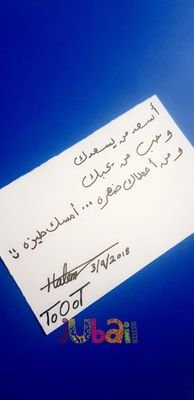 أسعد من يسعدك
وحب من يحبك
ومن أعطاك ظهره ... أمسك طيزه
Hatem
3/9/2018
ToOoT
JUbail